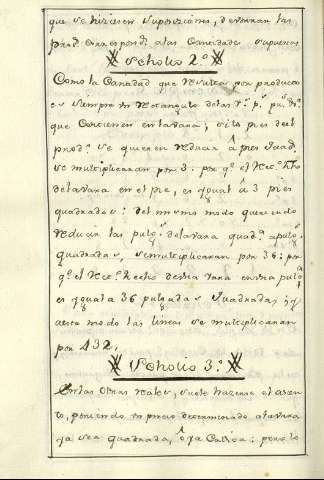 que se hiziesen suposiciones, devieran las
prod. correspond. a las Cantidades supuestas
Scholio 2º
Como la Cantidad que resulta por producto
es siempre un rectangulo de las
que contienen en la vara; si los pies del
prod.º se quieren reducir â pies quad.
se multiplicaran por 3: por q.º el rec.º
de la vara en el pie, es ygual a 3 pies
quadrados: del mismo modo queriendo
reducir las pulg.s de la vara quad.a a pulg.s
quadradas, se multiplicaran por 36: por
q.º el rec.º hecho de una vara en una pulg.a
es ygual a 36 pulgadas quadradas; y
de este modo las lineas se multiplicaran
por 432.
Scholio 3º
En las Obras reales, suele hazerse el asien
to, poniendo un precio determinado a la vara
ya sea quadrada, ô ya Cubica: pero lo